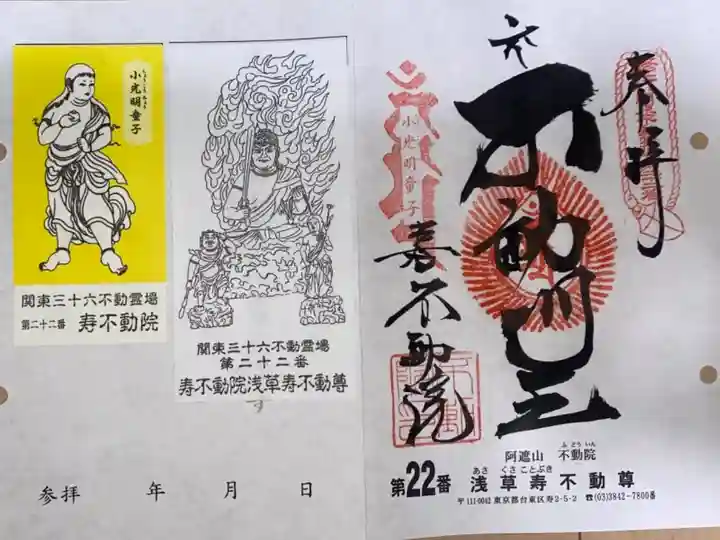 しょうこうみょう
小光明童子
関東三十六不動霊場
第二十二番 寿不動院
関東三十六不動霊場
第二十二番
寿不動院浅草寿不動尊
参拝 年 月 日
奉拝
不動明王
小光明童子
寿不動院
阿遮山 不動院
ふどういん
あさくさことぶき
第22番 浅草寿不動尊
〒111-0042 東京都台東区寿2-5-2 ☎(03)3842-7800番